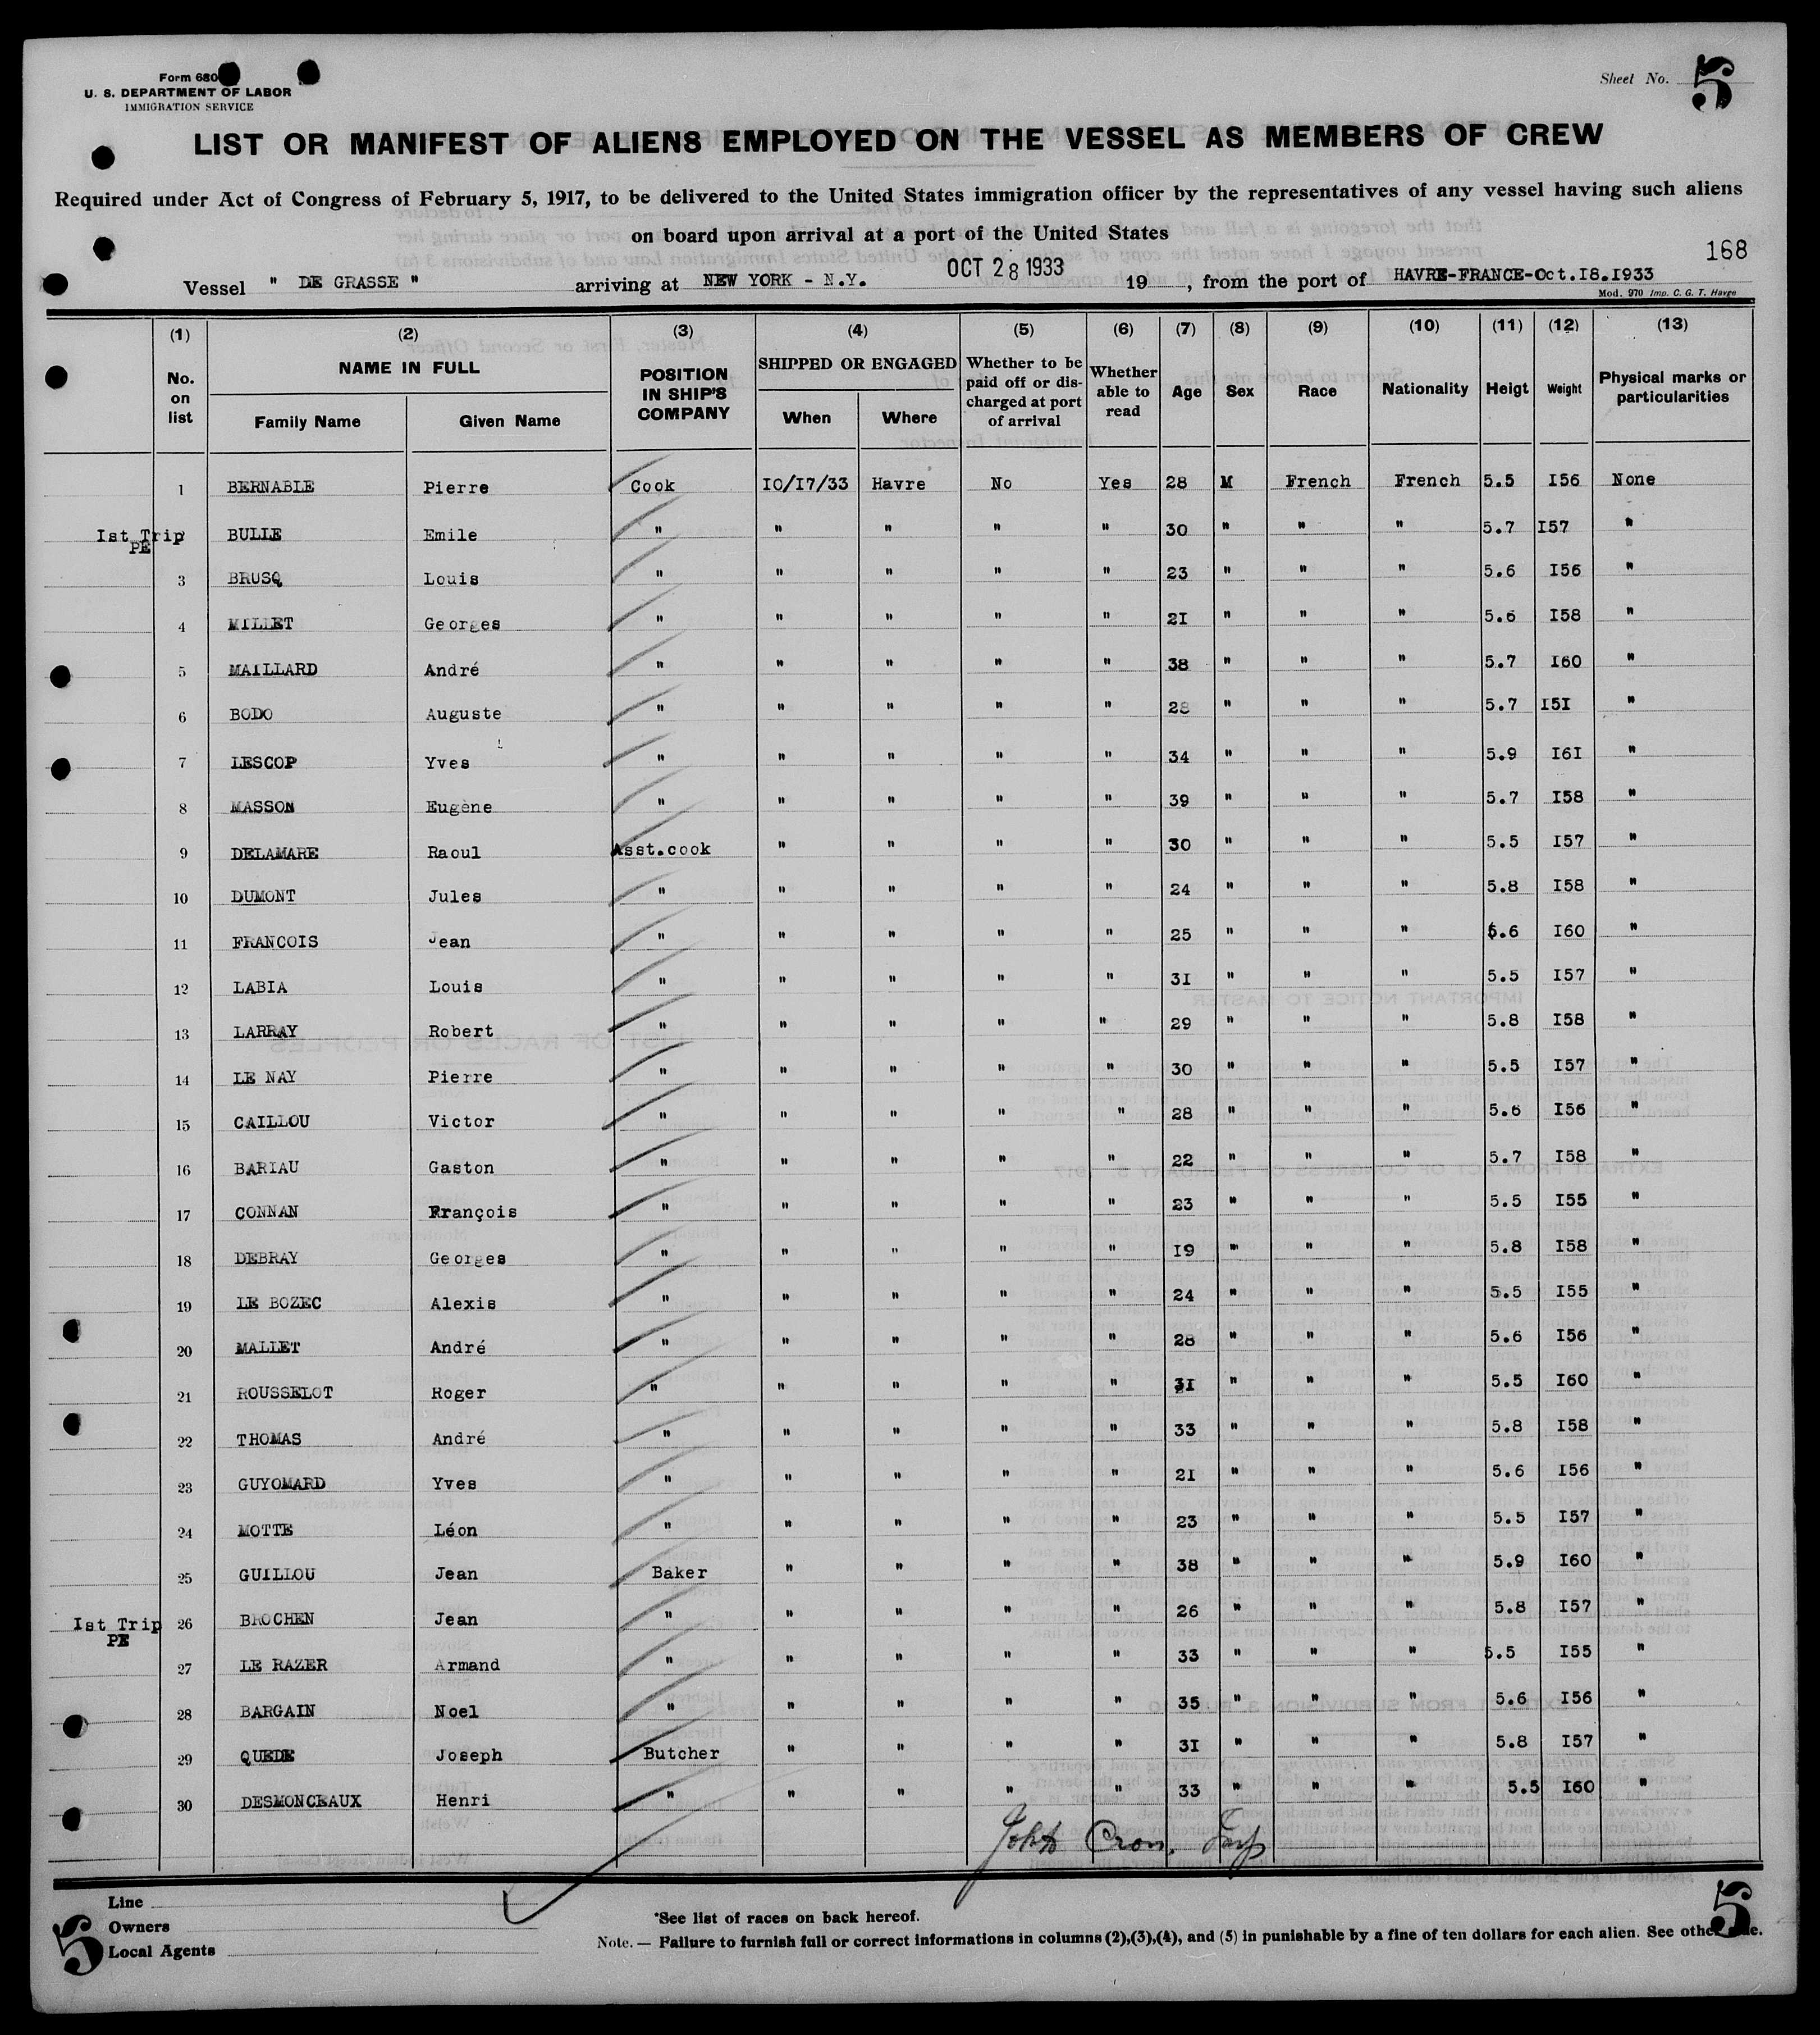 Form 680
U. S. DEPARTMENT OF LABOR
IMMIGRATION SERVICE
Sheet No. 5
LIST OR MANIFEST OF ALIENS EMPLOYED ON THE VESSEL AS MEMBERS OF CREW
Required under Act of Congress of February 5, 1917, to be delivered to the United States immigration officer by the representatives of any vessel having such aliens
on board upon arrival at a port of the United States
168
Vessel " DE GRASSE " arriving at NEW YORK - N.Y. OCT 28 1933 19 , from the port of HAVRE-FRANCE-Oct.I8.I933
Mod. 970 Imp. C. G. T. Havre
(1) (2) (3) (4) (5) (6) (7) (8) (9) (10) (11) (12) (13)
No. on list NAME IN FULL Family Name Given Name POSITION IN SHIP'S COMPANY SHIPPED OR ENGAGED When Where Whether to be paid off or discharged at port of arrival Whether able to read Age Sex Race Nationality Heigt Weight Physical marks or particularities
1 BERNABLE Pierre Cook IO/I7/33 Havre No Yes 28 M French French 5.5 I56 None
Ist Trip PE 2 BULLE Emile " " " " " 30 " " " 5.7 I57 "
3 BRUSQ Louis " " " " " 23 " " " 5.6 I56 "
4 MILLET Georges " " " " " 2I " " " 5.6 I58 "
5 MAILLARD André " " " " " 38 " " " 5.7 I60 "
6 BODO Auguste " " " " " 28 " " " 5.7 I5I "
7 LESCOP Yves " " " " " 34 " " " 5.9 I6I "
8 MASSON Eugène " " " " " 39 " " " 5.7 I58 "
9 DELAMARE Raoul Asst.cook " " " " 30 " " " 5.5 I57 "
10 DUMONT Jules " " " " " 24 " " " 5.8 I58 "
11 FRANCOIS Jean " " " " " 25 " " " 5.6 I60 "
12 LABIA Louis " " " " " 3I " " " 5.5 I57 "
13 LARRAY Robert " " " " " 29 " " " 5.8 I58 "
14 LE NAY Pierre " " " " " 30 " " " 5.5 I57 "
15 CAILLOU Victor " " " " " 28 " " " 5.6 I56 "
16 BARIAU Gaston " " " " " 22 " " " 5.7 I58 "
17 CONNAN François " " " " " 23 " " " 5.5 I55 "
18 DEBRAY Georges " " " " " I9 " " " 5.8 I58 "
19 LE BOZEC Alexis " " " " " 24 " " " 5.5 I55 "
20 MALLET André " " " " " 28 " " " 5.6 I56 "
21 ROUSSELOT Roger " " " " " 3I " " " 5.5 I60 "
22 THOMAS André " " " " " 33 " " " 5.8 I58 "
23 GUYOMARD Yves " " " " " 2I " " " 5.6 I56 "
24 MOTTE Léon " " " " " 23 " " " 5.5 I57 "
25 GUILLOU Jean Baker " " " " 38 " " " 5.9 I60 "
Ist Trip PE 26 BROCHEN Jean " " " " " 26 " " " 5.8 I57 "
27 LE RAZER Armand " " " " " 33 " " " 5.5 I55 "
28 BARGAIN Noel " " " " " 35 " " " 5.6 I56 "
29 QUEDE Joseph Butcher " " " " 3I " " " 5.8 I57 "
30 DESMONCEAUX Henri " " " " " 33 " " " 5.5 I60 "
Line
Owners
Local Agents
*See list of races on back hereof.
Note. — Failure to furnish full or correct informations in columns (2),(3),(4), and (5) in punishable by a fine of ten dollars for each alien. See other
5 5